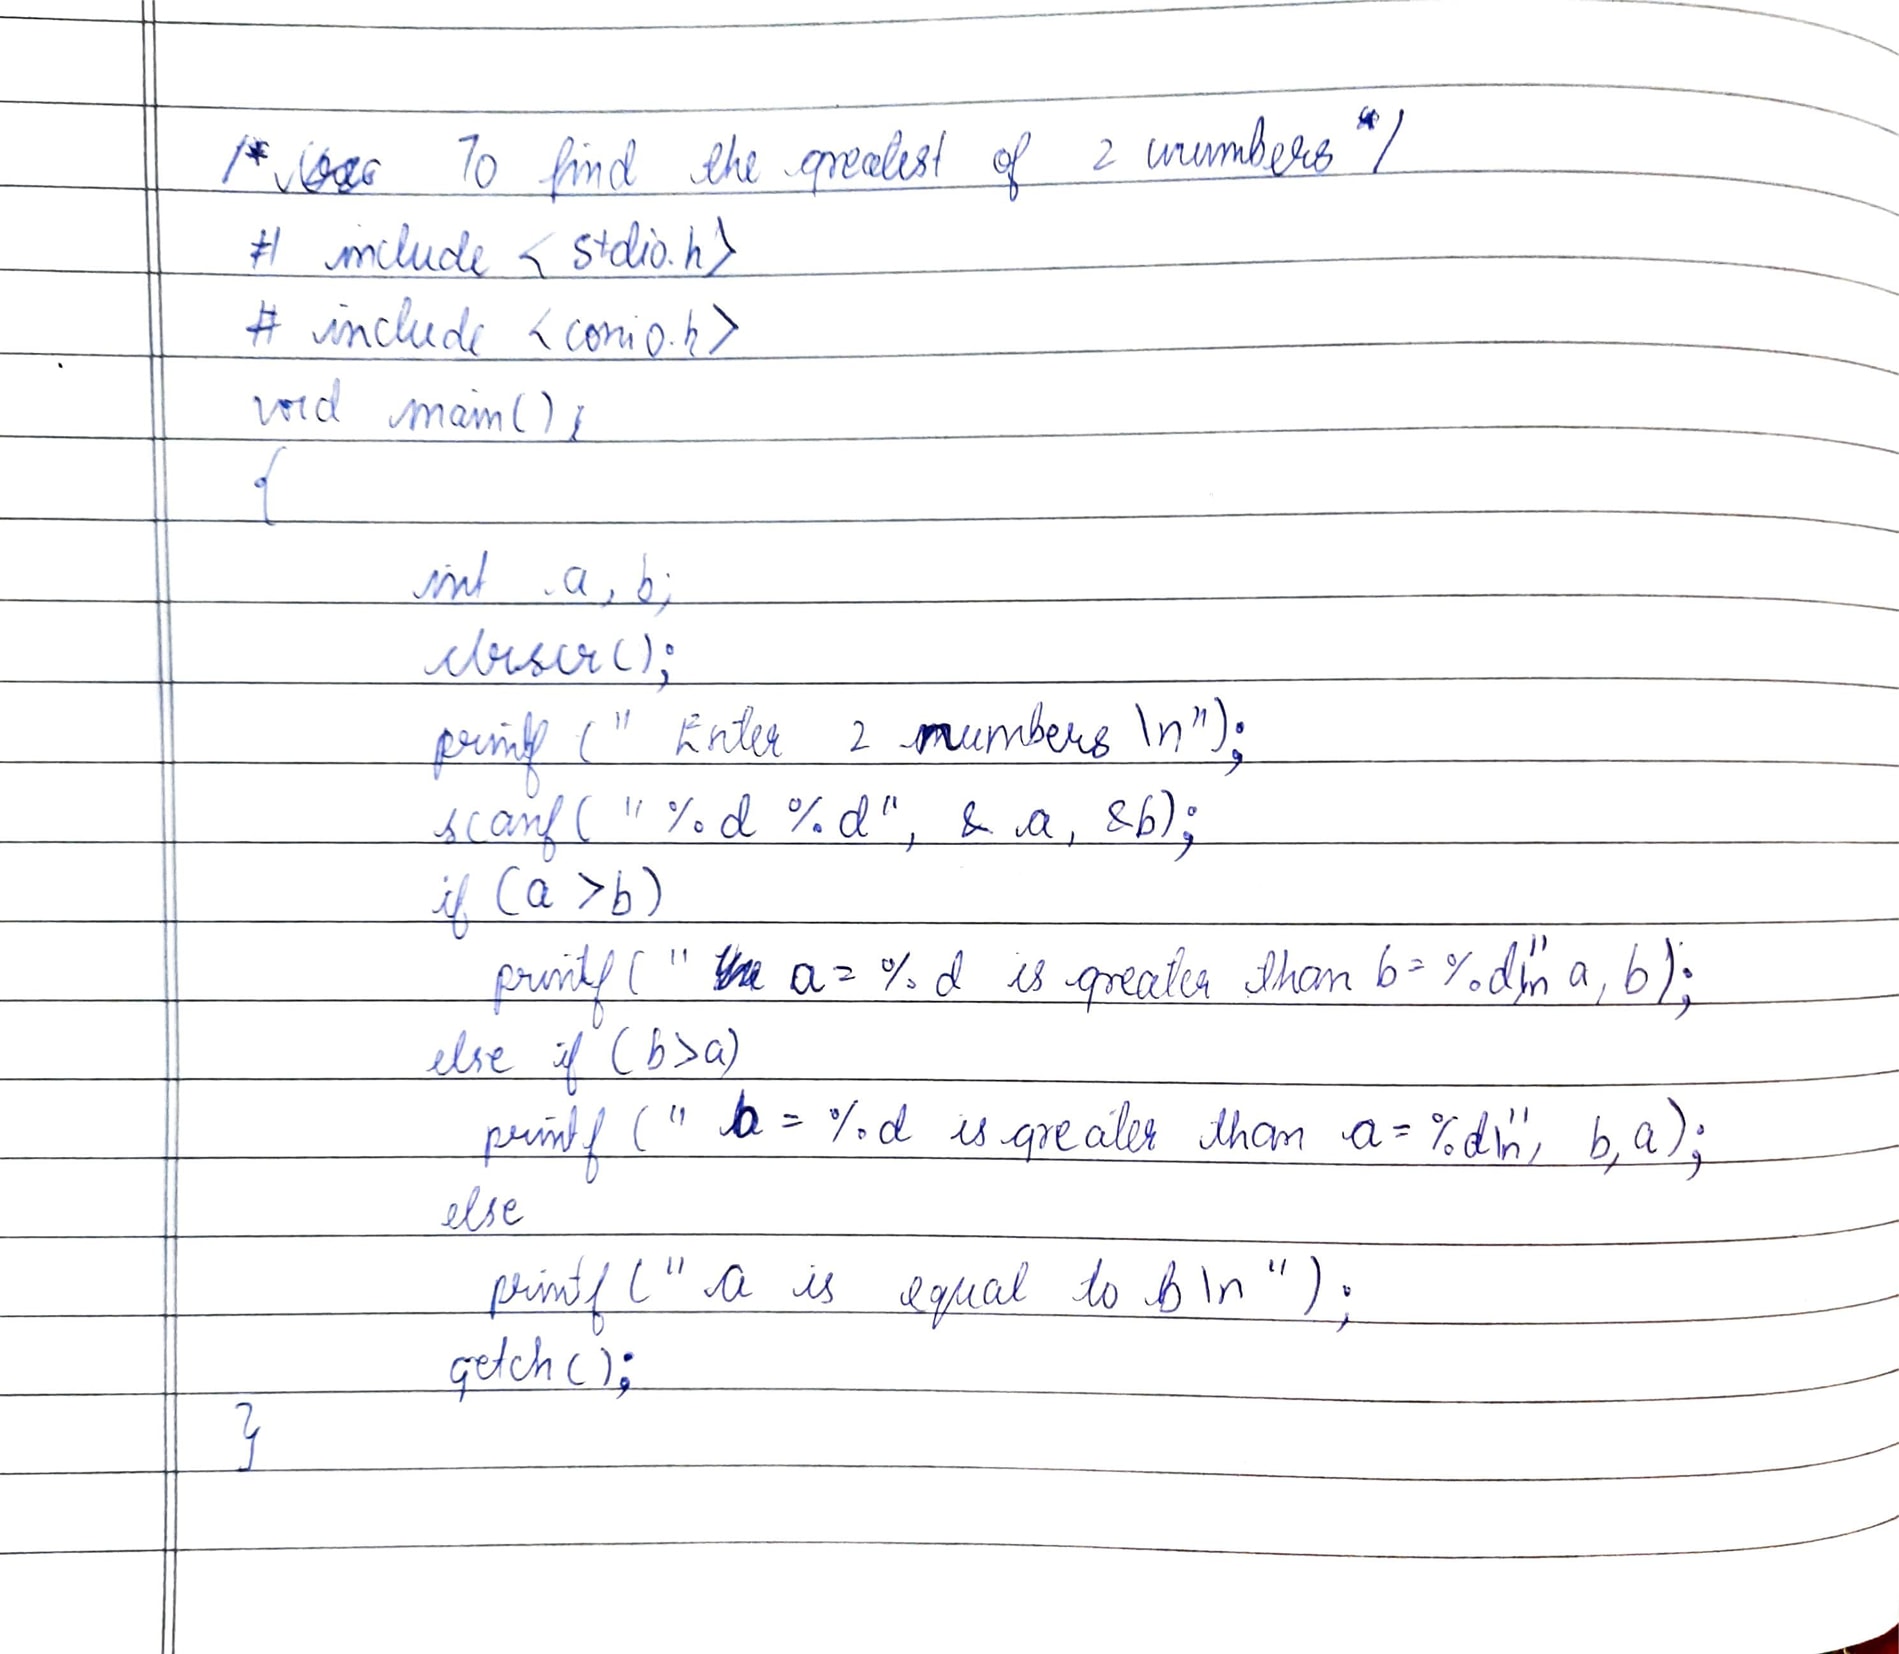 /* To find the greatest of 2 numbers */
# include < stdio.h>
# include <conio.h>
void main();
{
int a, b;
clrscr();
printf (" Enter 2 numbers \n");
scanf( " %d %d", & a, &b);
if (a >b)
printf( " a = %d is greater than b = %d\n" a, b);
else if (b>a)
printf (" b = %d is greater than a = %d\n", b, a);
else
printf (" a is equal to b \n ");
getch();
}